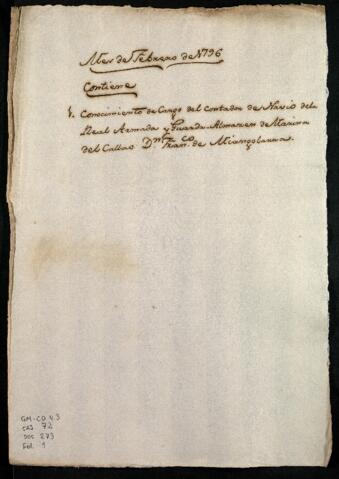 Mes de Febrero de 1796
Contiene
1. Conocimiento de Cargo del Contador de Navio de la
Real Armada y Guarda-Almacen de Marina
del Callao Dn. Franco. de Miangolarra.
GM-CO 4.3
CAJ 72
DOC 273
Fol. 1